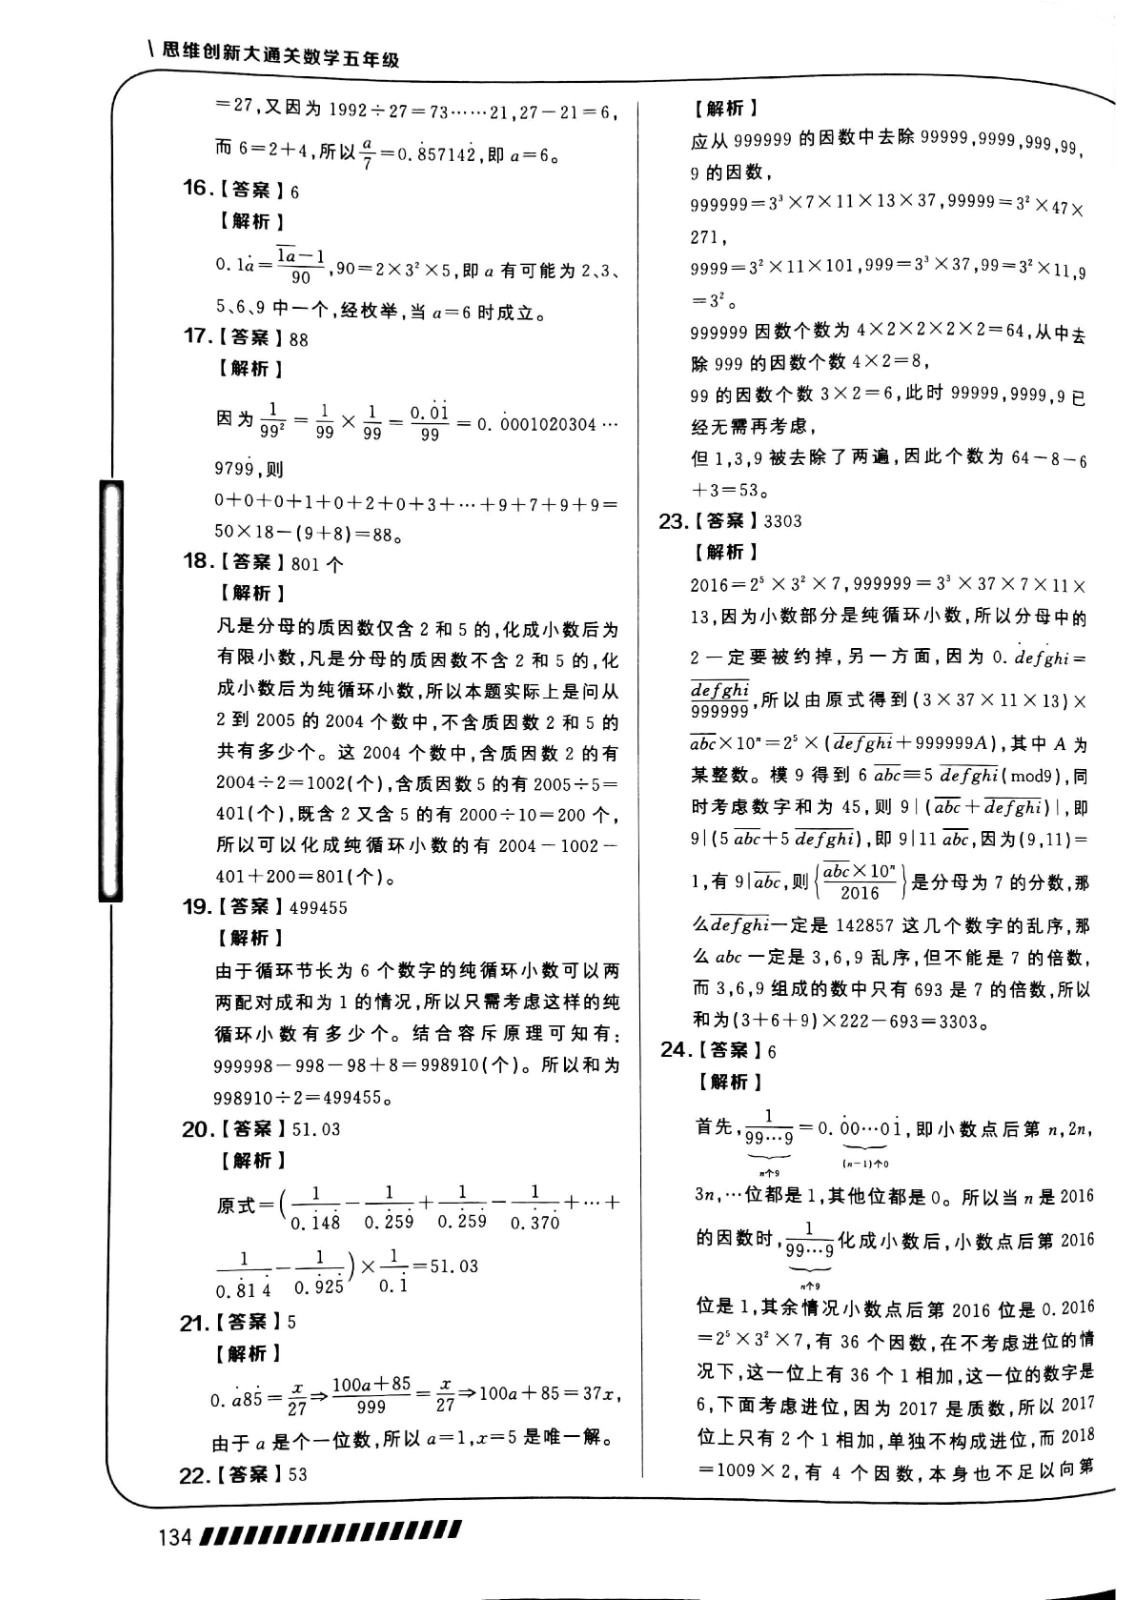 思维创新大通关数学五年级
=27,又因为 1992÷27=73……21,27-21=6,
而 6=2+4,所以 a/7=0.8̇57142̇,即 a=6。
16.【答案】6
【解析】
0.1ȧ=(1a̅-1)/90,90=2×3²×5,即 a 有可能为 2、3、
5、6、9 中一个,经枚举,当 a=6 时成立。
17.【答案】88
【解析】
因为 1/99²=1/99×1/99=0.0̇1̇/99=0.0̇001020304…
9799̇,则
0+0+0+1+0+2+0+3+…+9+7+9+9=
50×18-(9+8)=88。
18.【答案】801 个
【解析】
凡是分母的质因数仅含 2 和 5 的,化成小数后为
有限小数,凡是分母的质因数不含 2 和 5 的,化
成小数后为纯循环小数,所以本题实际上是问从
2 到 2005 的 2004 个数中,不含质因数 2 和 5 的
共有多少个。这 2004 个数中,含质因数 2 的有
2004÷2=1002(个),含质因数 5 的有 2005÷5=
401(个),既含 2 又含 5 的有 2000÷10=200 个,
所以可以化成纯循环小数的有 2004-1002-
401+200=801(个)。
19.【答案】499455
【解析】
由于循环节长为 6 个数字的纯循环小数可以两
两配对成和为 1 的情况,所以只需考虑这样的纯
循环小数有多少个。结合容斥原理可知有:
999998-998-98+8=998910(个)。所以和为
998910÷2=499455。
20.【答案】51.03
【解析】
原式=(1/0.1̇48̇-1/0.2̇59̇+1/0.2̇59̇-1/0.3̇70̇+…+
1/0.8̇14̇-1/0.9̇25̇)×1/0.1̇=51.03
21.【答案】5
【解析】
0.ȧ85̇=x/27⇒(100a+85)/999=x/27⇒100a+85=37x,
由于 a 是个一位数,所以 a=1,x=5 是唯一解。
22.【答案】53
【解析】
应从 999999 的因数中去除 99999,9999,999,99,
9 的因数,
999999=3³×7×11×13×37,99999=3²×47×
271,
9999=3²×11×101,999=3³×37,99=3²×11,9
=3²。
999999 因数个数为 4×2×2×2×2=64,从中去
除 999 的因数个数 4×2=8,
99 的因数个数 3×2=6,此时 99999,9999,9 已
经无需再考虑,
但 1,3,9 被去除了两遍,因此个数为 64-8-6
+3=53。
23.【答案】3303
【解析】
2016=2⁵×3²×7,999999=3³×37×7×11×
13,因为小数部分是纯循环小数,所以分母中的
2 一定要被约掉,另一方面,因为 0.ḋefghi̇=
d̅e̅f̅g̅h̅i̅/999999,所以由原式得到(3×37×11×13)×
a̅b̅c̅×10ⁿ=2⁵×(d̅e̅f̅g̅h̅i̅+999999A),其中 A 为
某整数。模 9 得到 6 a̅b̅c̅≡5 d̅e̅f̅g̅h̅i̅(mod9),同
时考虑数字和为 45,则 9|(a̅b̅c̅+d̅e̅f̅g̅h̅i̅)|,即
9|(5 a̅b̅c̅+5 d̅e̅f̅g̅h̅i̅),即 9|11 a̅b̅c̅,因为(9,11)=
1,有 9|a̅b̅c̅,则{a̅b̅c̅×10ⁿ/2016}是分母为 7 的分数,那
么d̅e̅f̅g̅h̅i̅一定是 142857 这几个数字的乱序,那
么 abc 一定是 3,6,9 乱序,但不能是 7 的倍数,
而 3,6,9 组成的数中只有 693 是 7 的倍数,所以
和为(3+6+9)×222-693=3303。
24.【答案】6
【解析】
首先,1/99…9=0.0̇0…01̇,即小数点后第 n,2n,
n个9 (n-1)个0
3n,…位都是 1,其他位都是 0。所以当 n 是 2016
的因数时,1/99…9化成小数后,小数点后第 2016
n个9
位是 1,其余情况小数点后第 2016 位是 0.2016
=2⁵×3²×7,有 36 个因数,在不考虑进位的情
况下,这一位上有 36 个 1 相加,这一位的数字是
6,下面考虑进位,因为 2017 是质数,所以 2017
位上只有 2 个 1 相加,单独不构成进位,而 2018
=1009×2,有 4 个因数,本身也不足以向第
134